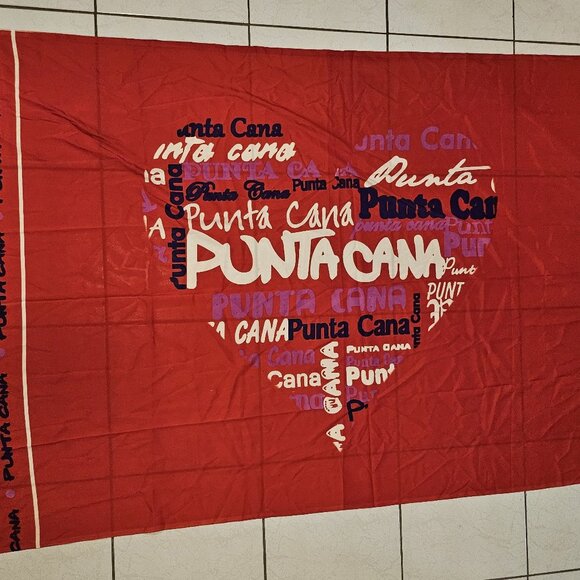 unta Cana
unta Cana
inta cana
PUNTA CANA
Punta Cana
Punta Cana
Punta
Punta Cana
Punta Cana
Punta Can
punta cana
Punt
PUNTA CANA
Punt
PUNTA CANA
PUNT
CANA
Punta Cana
unta Cana
Cana
PUNTA CANA
Punta Cana
Cana
Punt
CANA
PUNTA CANA
PUNTA CANA
CANA